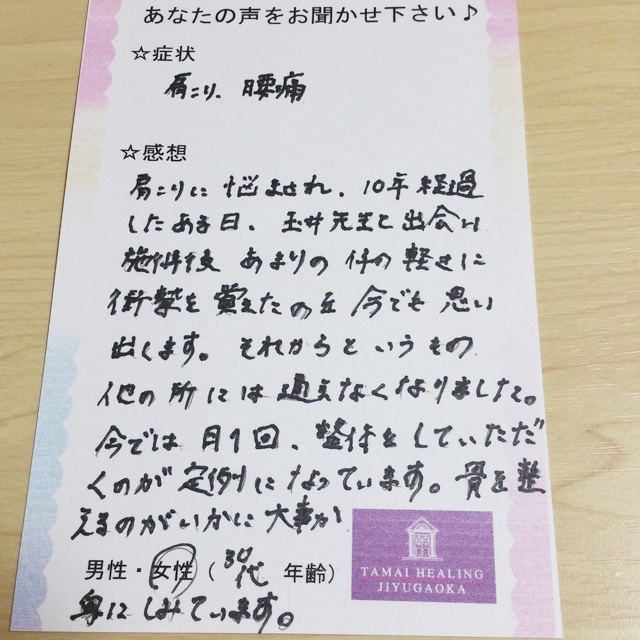 あなたの声をお聞かせ下さい♪
☆症状
肩こり、腰痛
☆感想
肩こりに悩まされ、10年経過
したある日、玉井先生と出会い
施術後 あまりの体の軽さに
衝撃を覚えたのを今でも思い
出します。それからというもの
他の所には通えなくなりました。
今では月1回、整体をしていただ
くのが定例になっています。骨を整
えるのがいかに大事か
男性・女性(30代 年齢)
身にしみています。
TAMAI HEALING
JIYUGAOKA